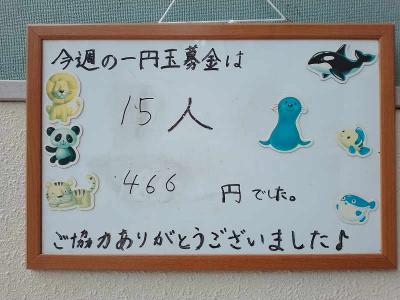 今週の一円玉募金は
15人
466 円でした。
ご協力ありがとうございました♪